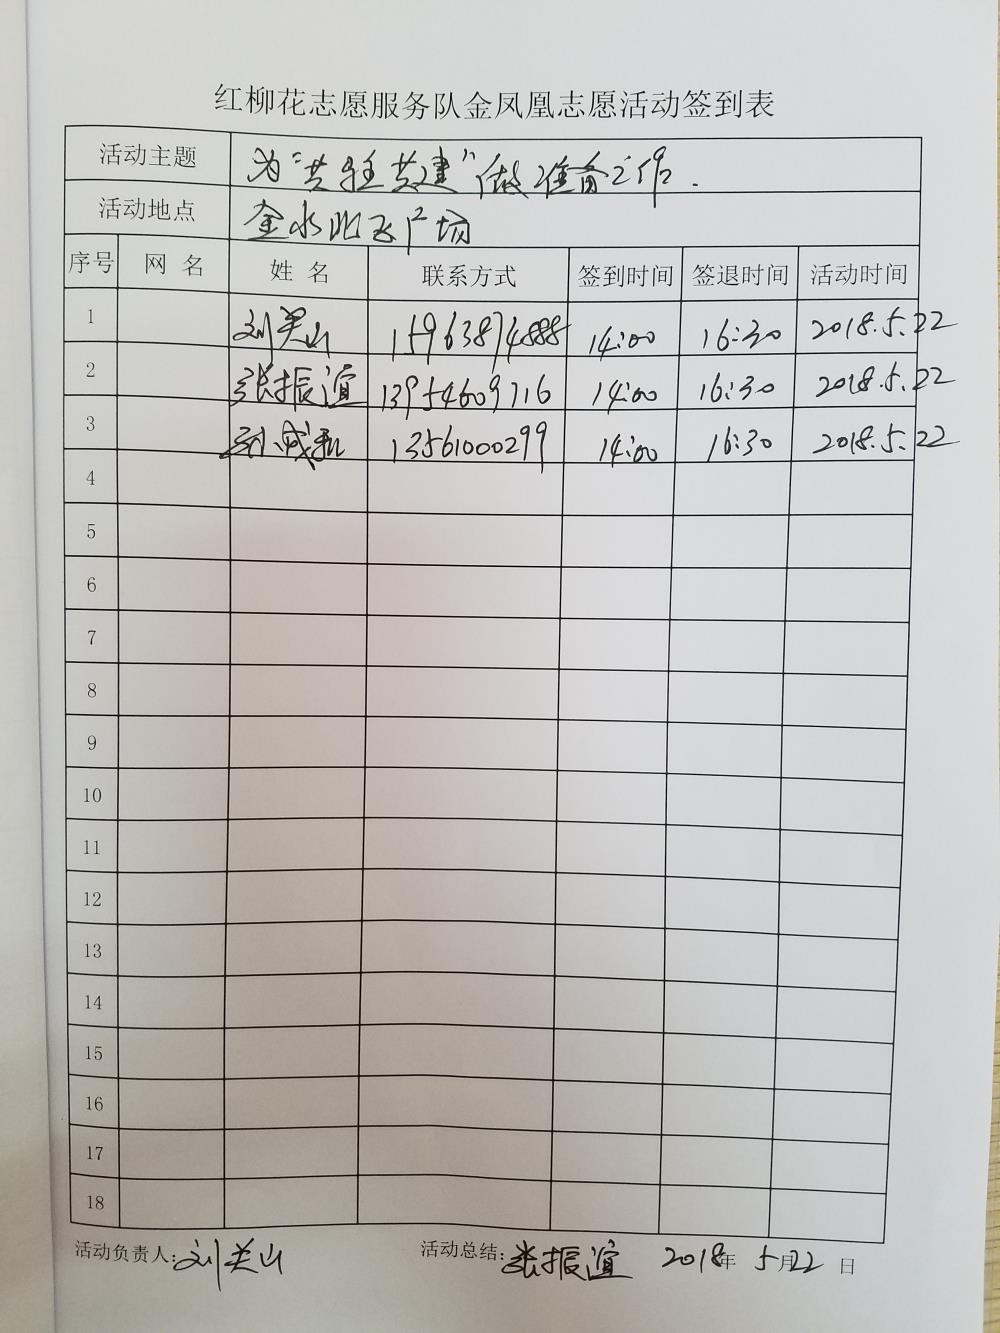 红柳花志愿服务队金凤凰志愿活动签到表
活动主题 为"共驻共建"做准备工作.
活动地点 金水 广场
序号 网名 姓名 联系方式 签到时间 签退时间 活动时间
1 刘关山 15963874888 14:00 16:30 2018.5.22
2 张振谊 13954609716 14:00 16:30 2018.5.22
3 孙 13561000299 14:00 16:30 2018.5.22
4
5
6
7
8
9
10
11
12
13
14
15
16
17
18
活动负责人:刘关山 活动总结:张振谊 2018年 5月22 日